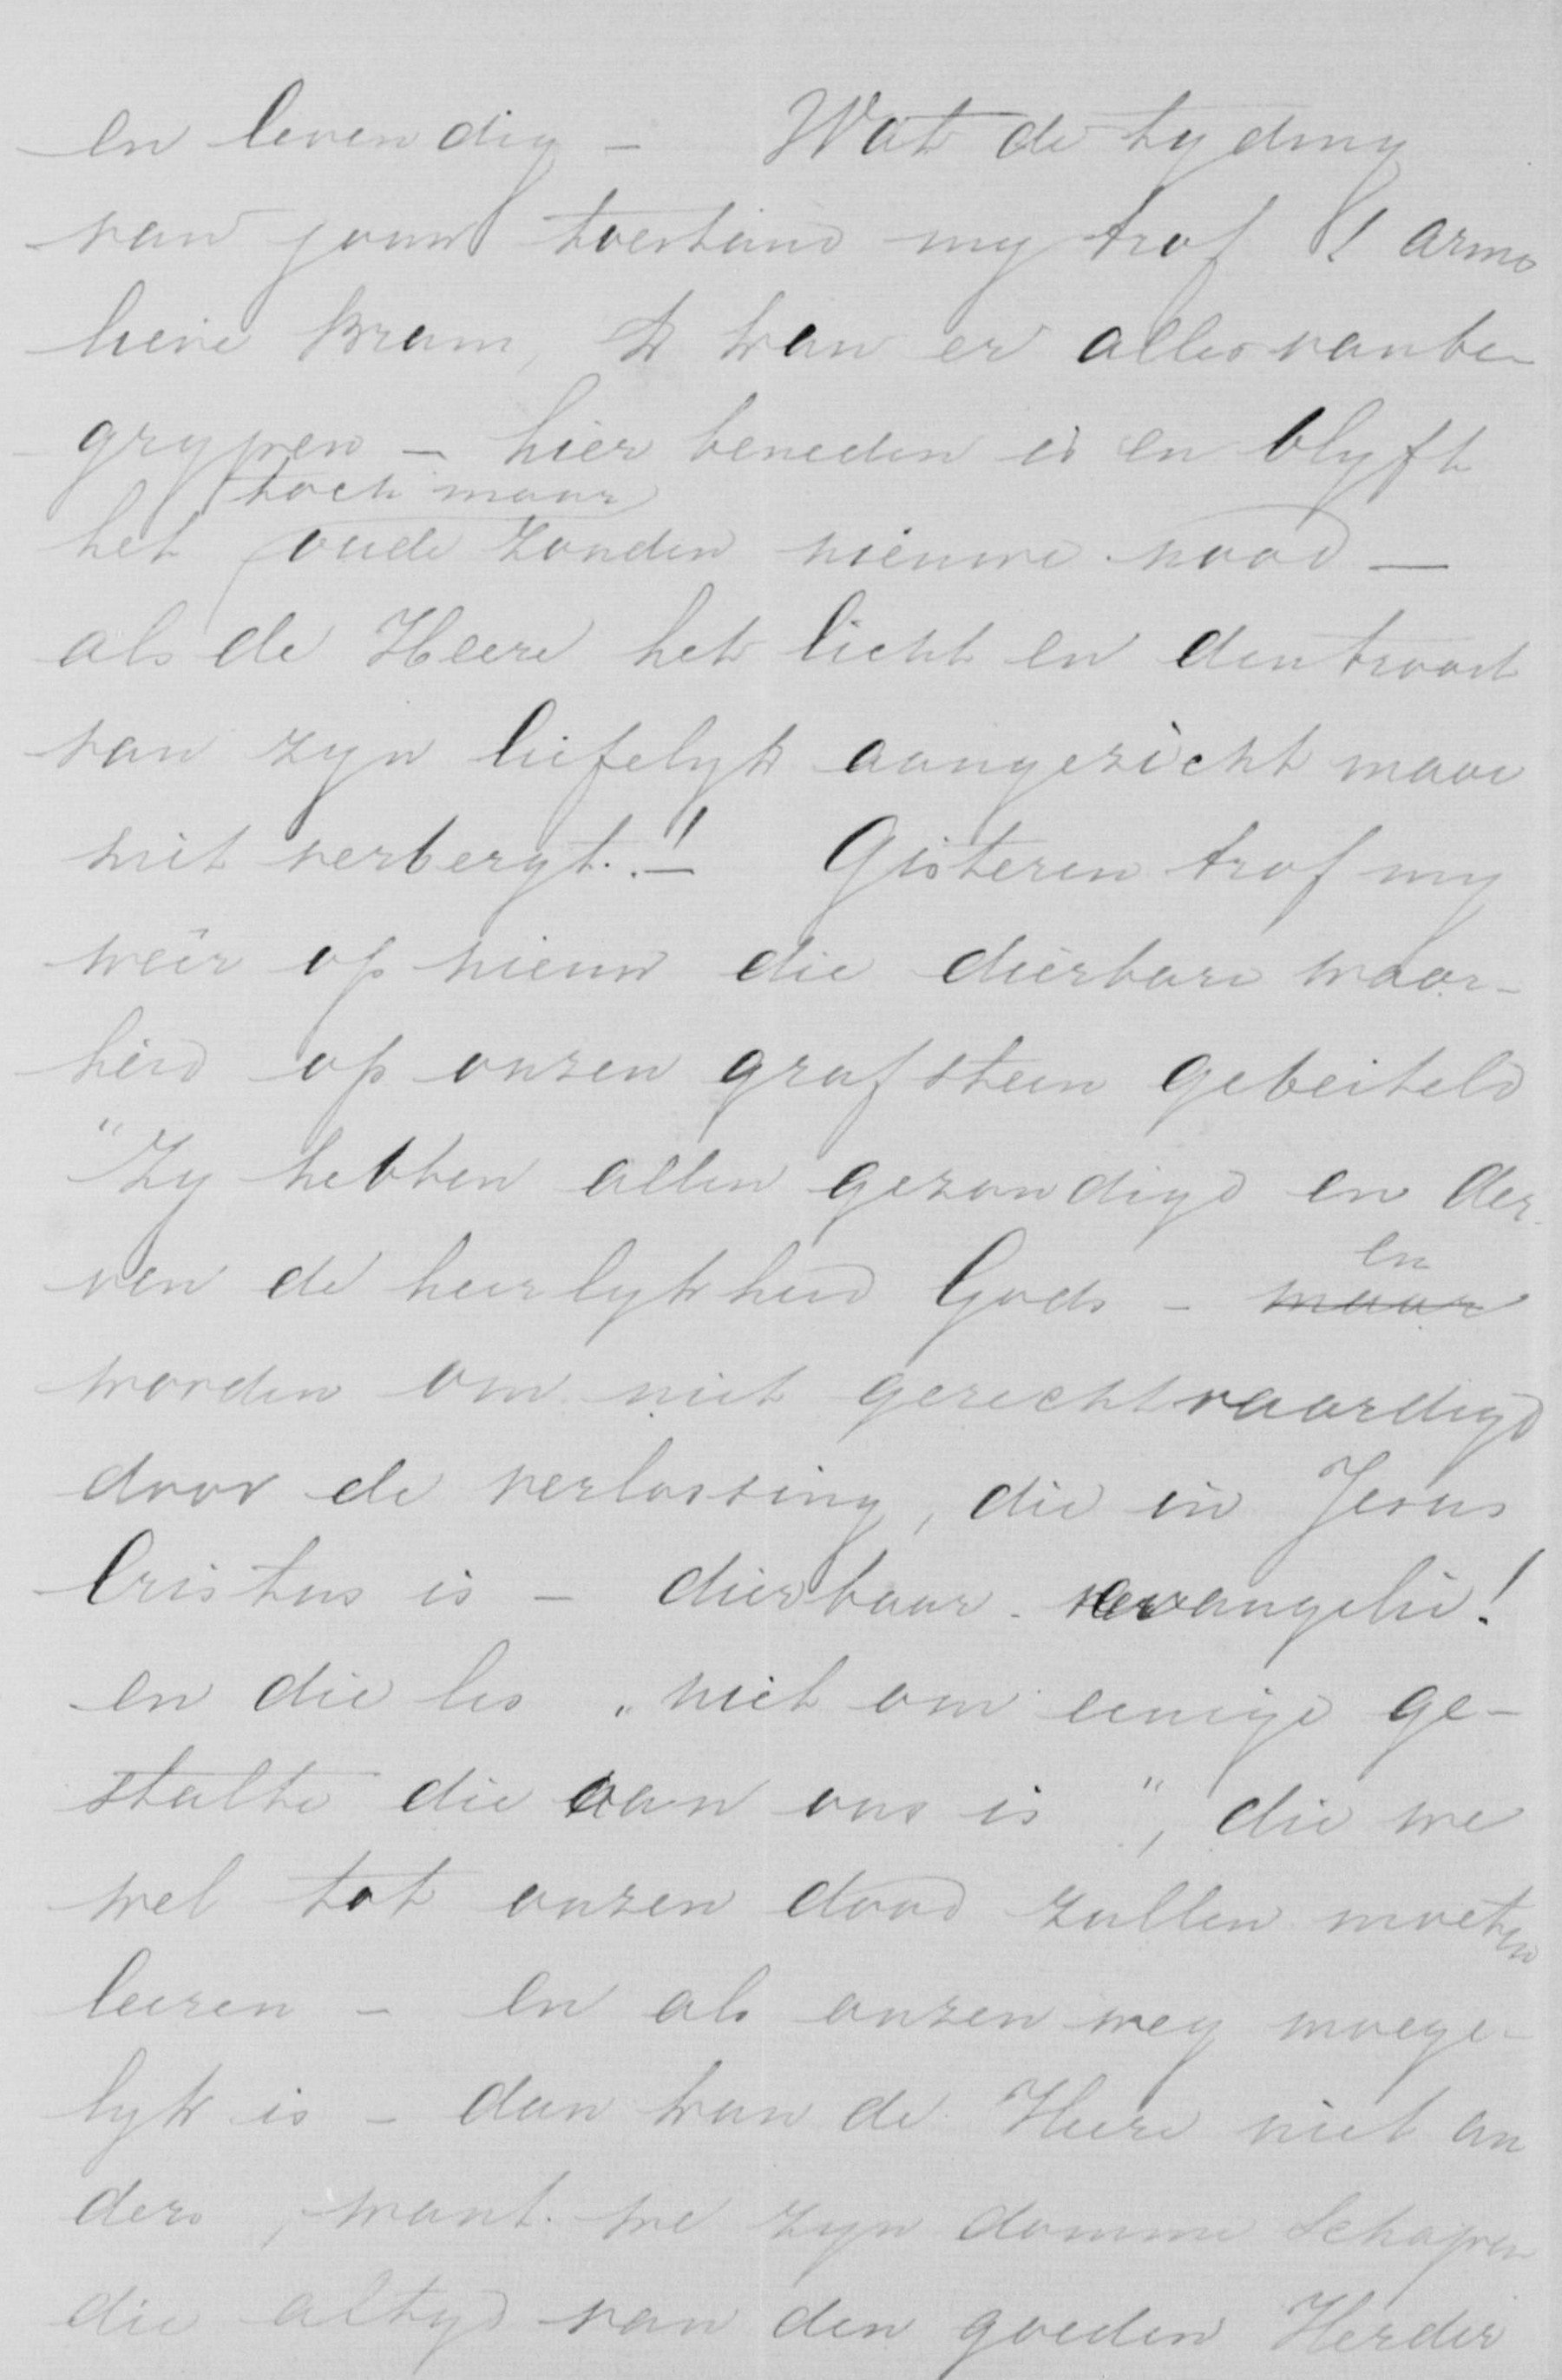 en levendig – Wat de tyding
van jouw toestand my trof ! arme
lieve Bram, Ik kan er alles van be-
grypen – hier beneden is en blyft
toch maar
het oude zonden nieuwe nood –
als de Heere het licht en den troost
van zyn liefelyk aangezicht maar
niet verbergt.! – Gisteren trof my
weêr op nieuw die dierbare waar-
heid op onzen grafsteen gebeiteld
"Zy hebben allen gezondigd en der-
en
ven de heerlykheid Gods – maar
worden om niet gerechtvaardigd
door de verlossing, die in Jesus
Cristus is – dierbaar evangelie!
en die les „niet om eenige ge-
stalte die aan ons is", die we
wel tot onzen dood zullen moeten
leeren – en als onzen weg moeye-
lyk is – dan kan de Heere niet an
ders, want we zyn domme Schapen
die altyd van den goeden Herder